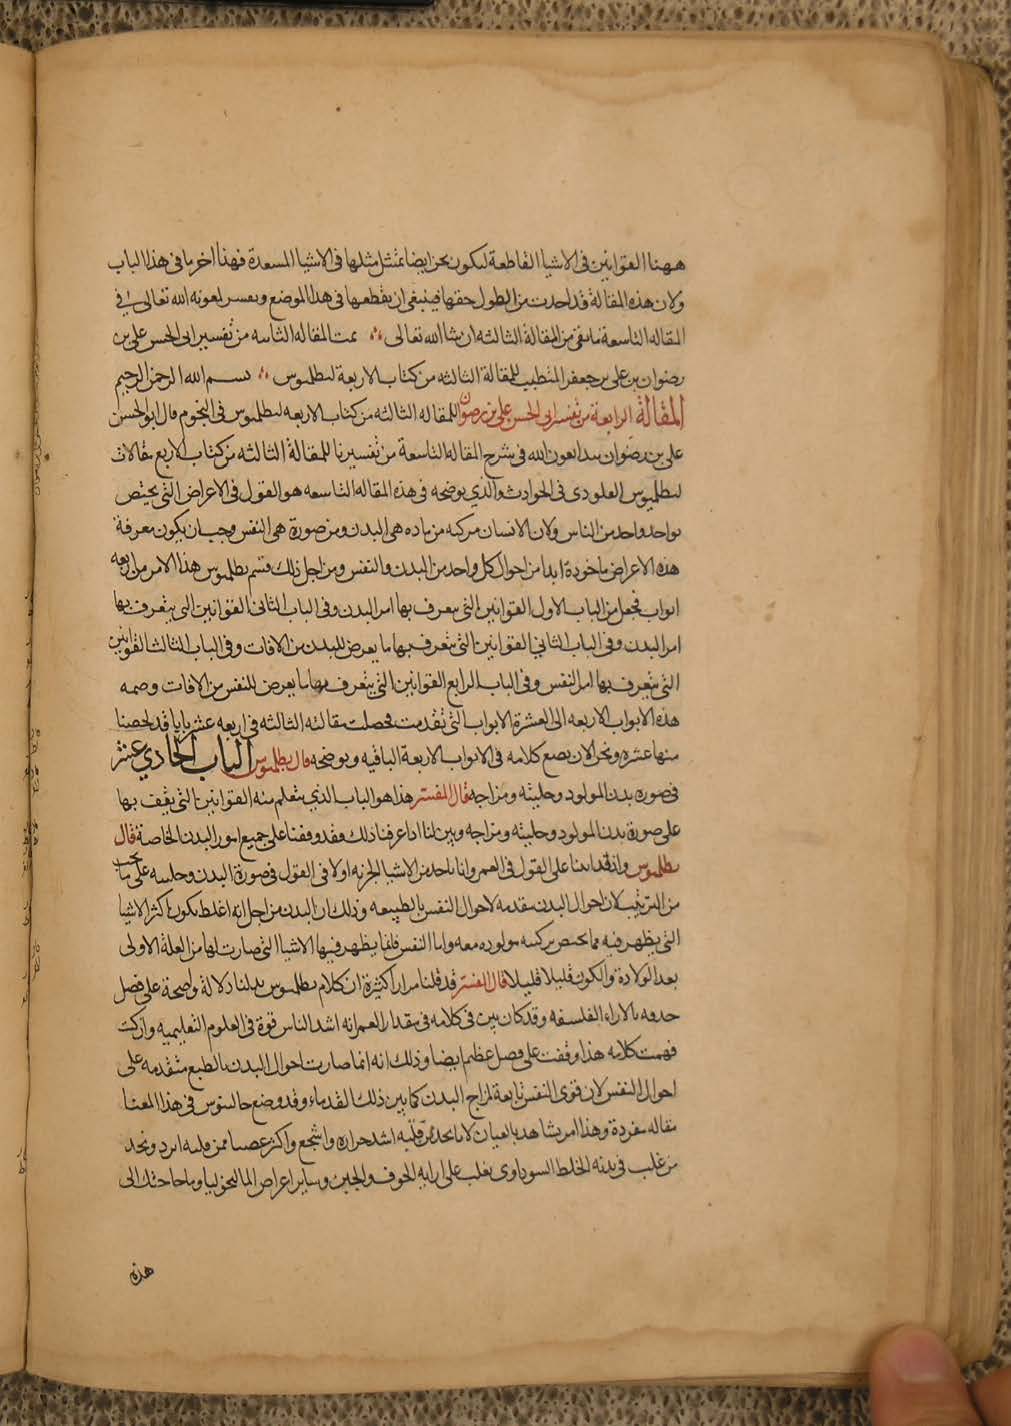 ههنا القوانين فى الاشيا القاطعة ليكون نحن ايضا نمتثل مثلها فى الاشيا المسعدة فهذا اخر ما فى هذا الباب
ولان هذه المقالة قد اخذت من الطول حقها فينبغى ان نقطعها فى هذا الموضع ونفسر بمعونه الله تعالى فى
المقاله التاسعة ما بقى من المقالة الثالثه ان شا الله تعالى تمت المقاله الثامنه من تفسير ابى الحسن على بن
رضوان بن على بن جعفر المتطبب للمقالة الثالثه من كتاب الاربعة لبطلميوس بسم الله الرحمن الرحيم
المقالة الرابعة من تفسير ابى الحسن على بن رضوان للمقاله الثالثه من كتاب الاربعه لبطلميوس فى النجوم قال ابو الحسن
على بن رضوان نبدا بعون الله فى شرح المقاله التاسعة من تفسيرنا للمقالة الثالثه من كتاب الاربع مقالات
لبطلميوس القلوذى فى الحوادث والذي يوضحه فى هذه المقاله التاسعه هو القول فى الاعراض التى يختص
بواحد واحد من الناس ولان الانسان مركبه من ماده هى البدن ومن صورة هى النفس وجب ان يكون معرفة
هذه الاعراض ماخوذة ابدا من احوال كل واحد من البدن والنفس ومن اجل ذلك قسم بطلميوس هذا الامر من اربعه
ابواب فجعل من الباب الاول القوانين التى يتعرف بها امر البدن وفى الباب الثانى القوانين التى يتعرف بها
امر البدن وفى الباب الثاني القوانين التى يتعرف بها ما يعرض للبدن من الافات وفى الباب الثالث القوانين
التى يتعرف بها امر النفس وفى الباب الرابع القوانين التى يتعرف بها ما يعرض للنفس من الافات وضمه
هذه الابواب الاربعه الى العشرة الابواب التى تقدمت فحصلت مقالته الثالثه فى اربعه عشر بابا قد لخصنا
منها عشره ونحن الان نضع كلامه فى الابواب الاربعة الباقيه ونوضحه قال بطلميوس الباب الحادي عشر
فى صوره بدن المولود وحليته ومزاجه قال المفسر هذا هو الباب الذي يتعلم منه القوانين التى يقف بها
على صورة بدن المولود وحليته ومزاجه وبين لنا اذا عرفنا ذلك فقد وقفنا على جميع امور البدن الخاصة قال
بطلميوس واذ قد اتينا على القول فى العمر وانا ناخذ من الاشيا الجزيه اولا فى القول فى صورة البدن وحليته على ما يجب
من الترتيب لان احوال البدن متقدمه لاحوال النفس بالطبيعه وذلك ان البدن من اجل انه اغلظ يكون اكثر الاشيا
التى يظهر فيه مما يختص بتركيبه مولوده معه واما النفس فانما يظهر فيها الاشيا التى صارت لها من العلة الاولى
بعد الولادة والكون قليلا قليلا قال المفسر قد قلنا مرارا كثيرة ان كلام بطلميوس يدلنا دلالة واضحة على فضل
حذقه بالاراء الفلسفه وقد كان بين فى كلامه فى مقدار العمر انه اشد الناس قوة فى العلوم التعليميه وان كنت
فهمت كلامه هذا وقفت على فصل عظيم ايضا وذلك انه انما صارت احوال البدن بالطبع متقدمه على
احوال النفس لان قوى النفس تابعة لمزاج البدن كما بين ذلك القدماء وقد وضع جالينوس فى هذا المعنا
مقاله مفردة وهذا امر يشاهد بالعيان لانا نجد من قلبه اشد حراره واشجع واكثر غضبا ممن قلبه ابرد ونجد
من غلب فى بدنه الخلط السوداوى يغلب على رايه الخوف والجبن وساير اعراض الماليخوليا وما حاجتك الى
هذه